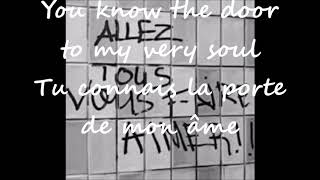 You know the door
to my very soul
Tu connais la porte
de mon âme
ALLEZ
TOUS
VOUS FAIRE
AIMER!!